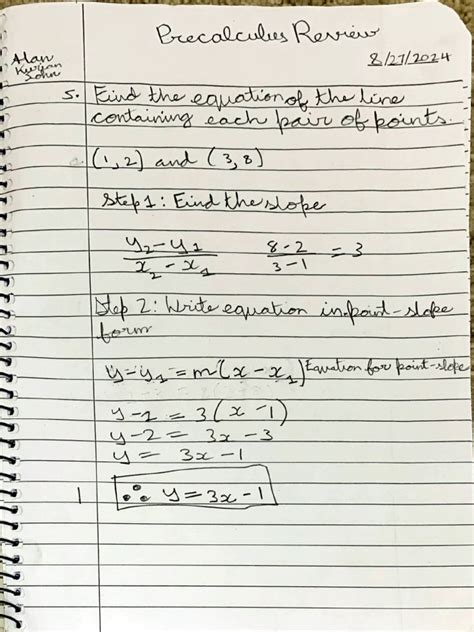 Precalculus Review
8/27/2024
Alan
John
5. Find the equation of the line
containing each pair of points.
a. (1,2) and (3,8)
Step 1: Find the slope
y₂-y₁/x₂-x₁ 8-2/3-1 = 3
Step 2: Write equation in point-slope
form
y-y₁ = m(x-x₁) Equation for point-slope
y-2 = 3(x-1)
y-2 = 3x-3
y = 3x-1
1 ∴ y=3x-1